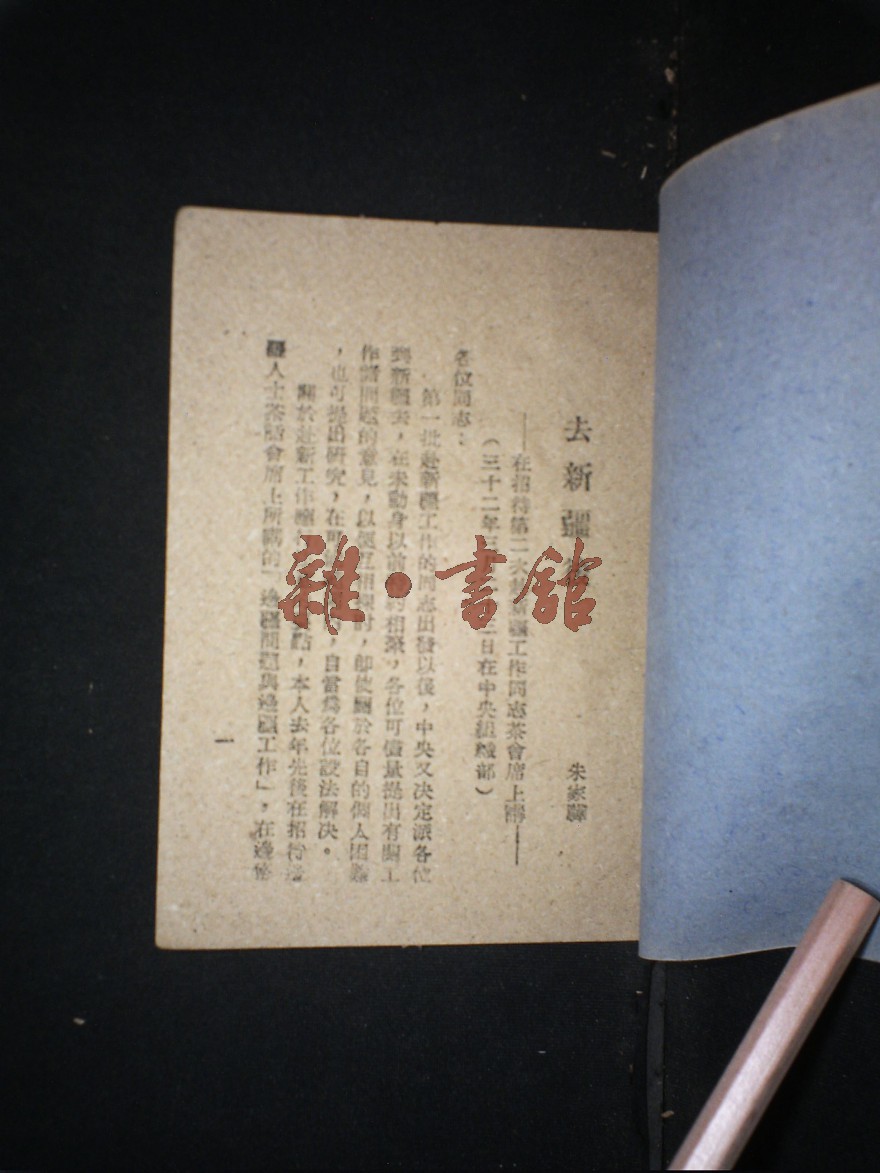 去新疆
朱家驊
——在招待第二次赴新疆工作同志茶會席上講——
(三十二年三月 三日在中央組織部)
各位同志：
第一批赴新疆工作的同志出發以後，中央又决定派各位
到新疆去，在未動身以前 約相聚，各位可儘量提出有關工
作諸問題的意見，以便互相 討，即使關於各自的個人困難
，也可提出研究，在可 ，自當爲各位設法解决。
關於赴新工作 點，本人去年先後在招待邊
疆人士茶話會席上所講的「邊疆問題與邊疆工作」，在邊
一
雜·書館